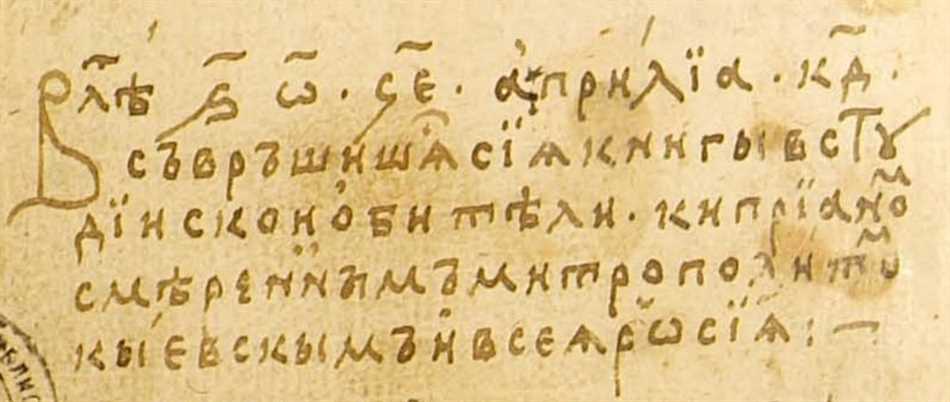 В лѣⷮ ҂ѕ҃ ѿ҃. ч҃е. а҆прилїа. к҃д.
съврьшишѧ сїѧ книгы в стꙋ
дїискои ѻ҆бители. кипрїаноⷨ
смѣренныимъ митрополитѡⷨ
кыевскымъ и҆ всеѧ рѡсїѧ :~